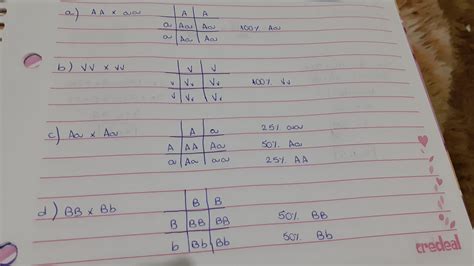 a) AA x aa | A | A
a | Aa | Aa 100% Aa
a | Aa | Aa
b) VV x vv | V | V
v | Vv | Vv 100% Vv
v | Vv | Vv
c) Aa x Aa | A | a 25% aa
A | AA | Aa 50% Aa
a | Aa | aa 25% AA
d) BB x Bb | B | B
B | BB | BB 50% BB
b | Bb | Bb 50% Bb
credeal